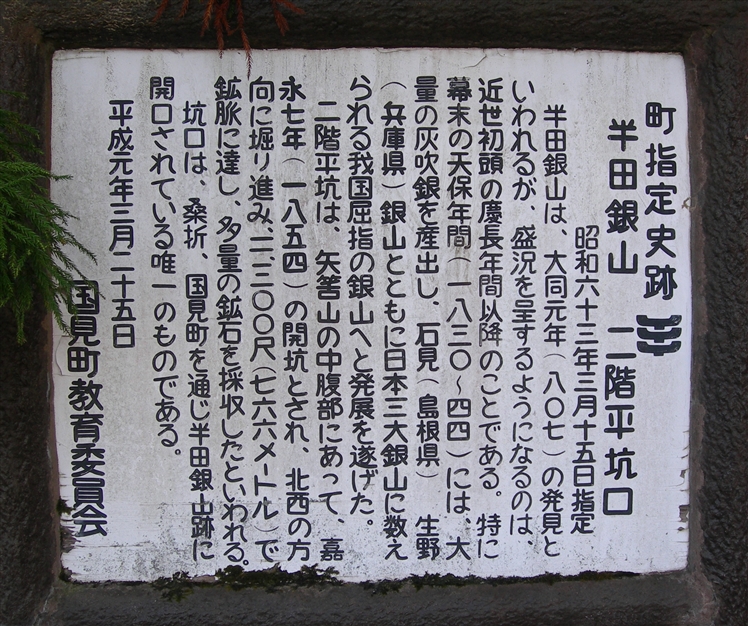 町指定史跡
半田銀山　二階平坑口
昭和六十三年三月十五日指定
半田銀山は、大同元年（八〇七）の発見と
いわれるが、盛況を呈するようになるのは、
近世初頭の慶長年間以降のことである。特に
幕末の天保年間（一八三〇〜四四）には、大
量の灰吹銀を産出し、石見（島根県）生野
（兵庫県）銀山とともに日本三大銀山に数え
られる我国屈指の銀山へと発展を遂げた。
二階平坑は、矢筈山の中腹部にあって、嘉
永七年（一八五四）の開坑とされ、北西の方
向に堀り進み、二、三〇〇尺（七六六メートル）で
鉱脈に達し、多量の鉱石を採収したといわれる。
坑口は、桑折、国見町を通じ半田銀山跡に
開口されている唯一のものである。
平成元年三月二十五日
国見町教育委員会